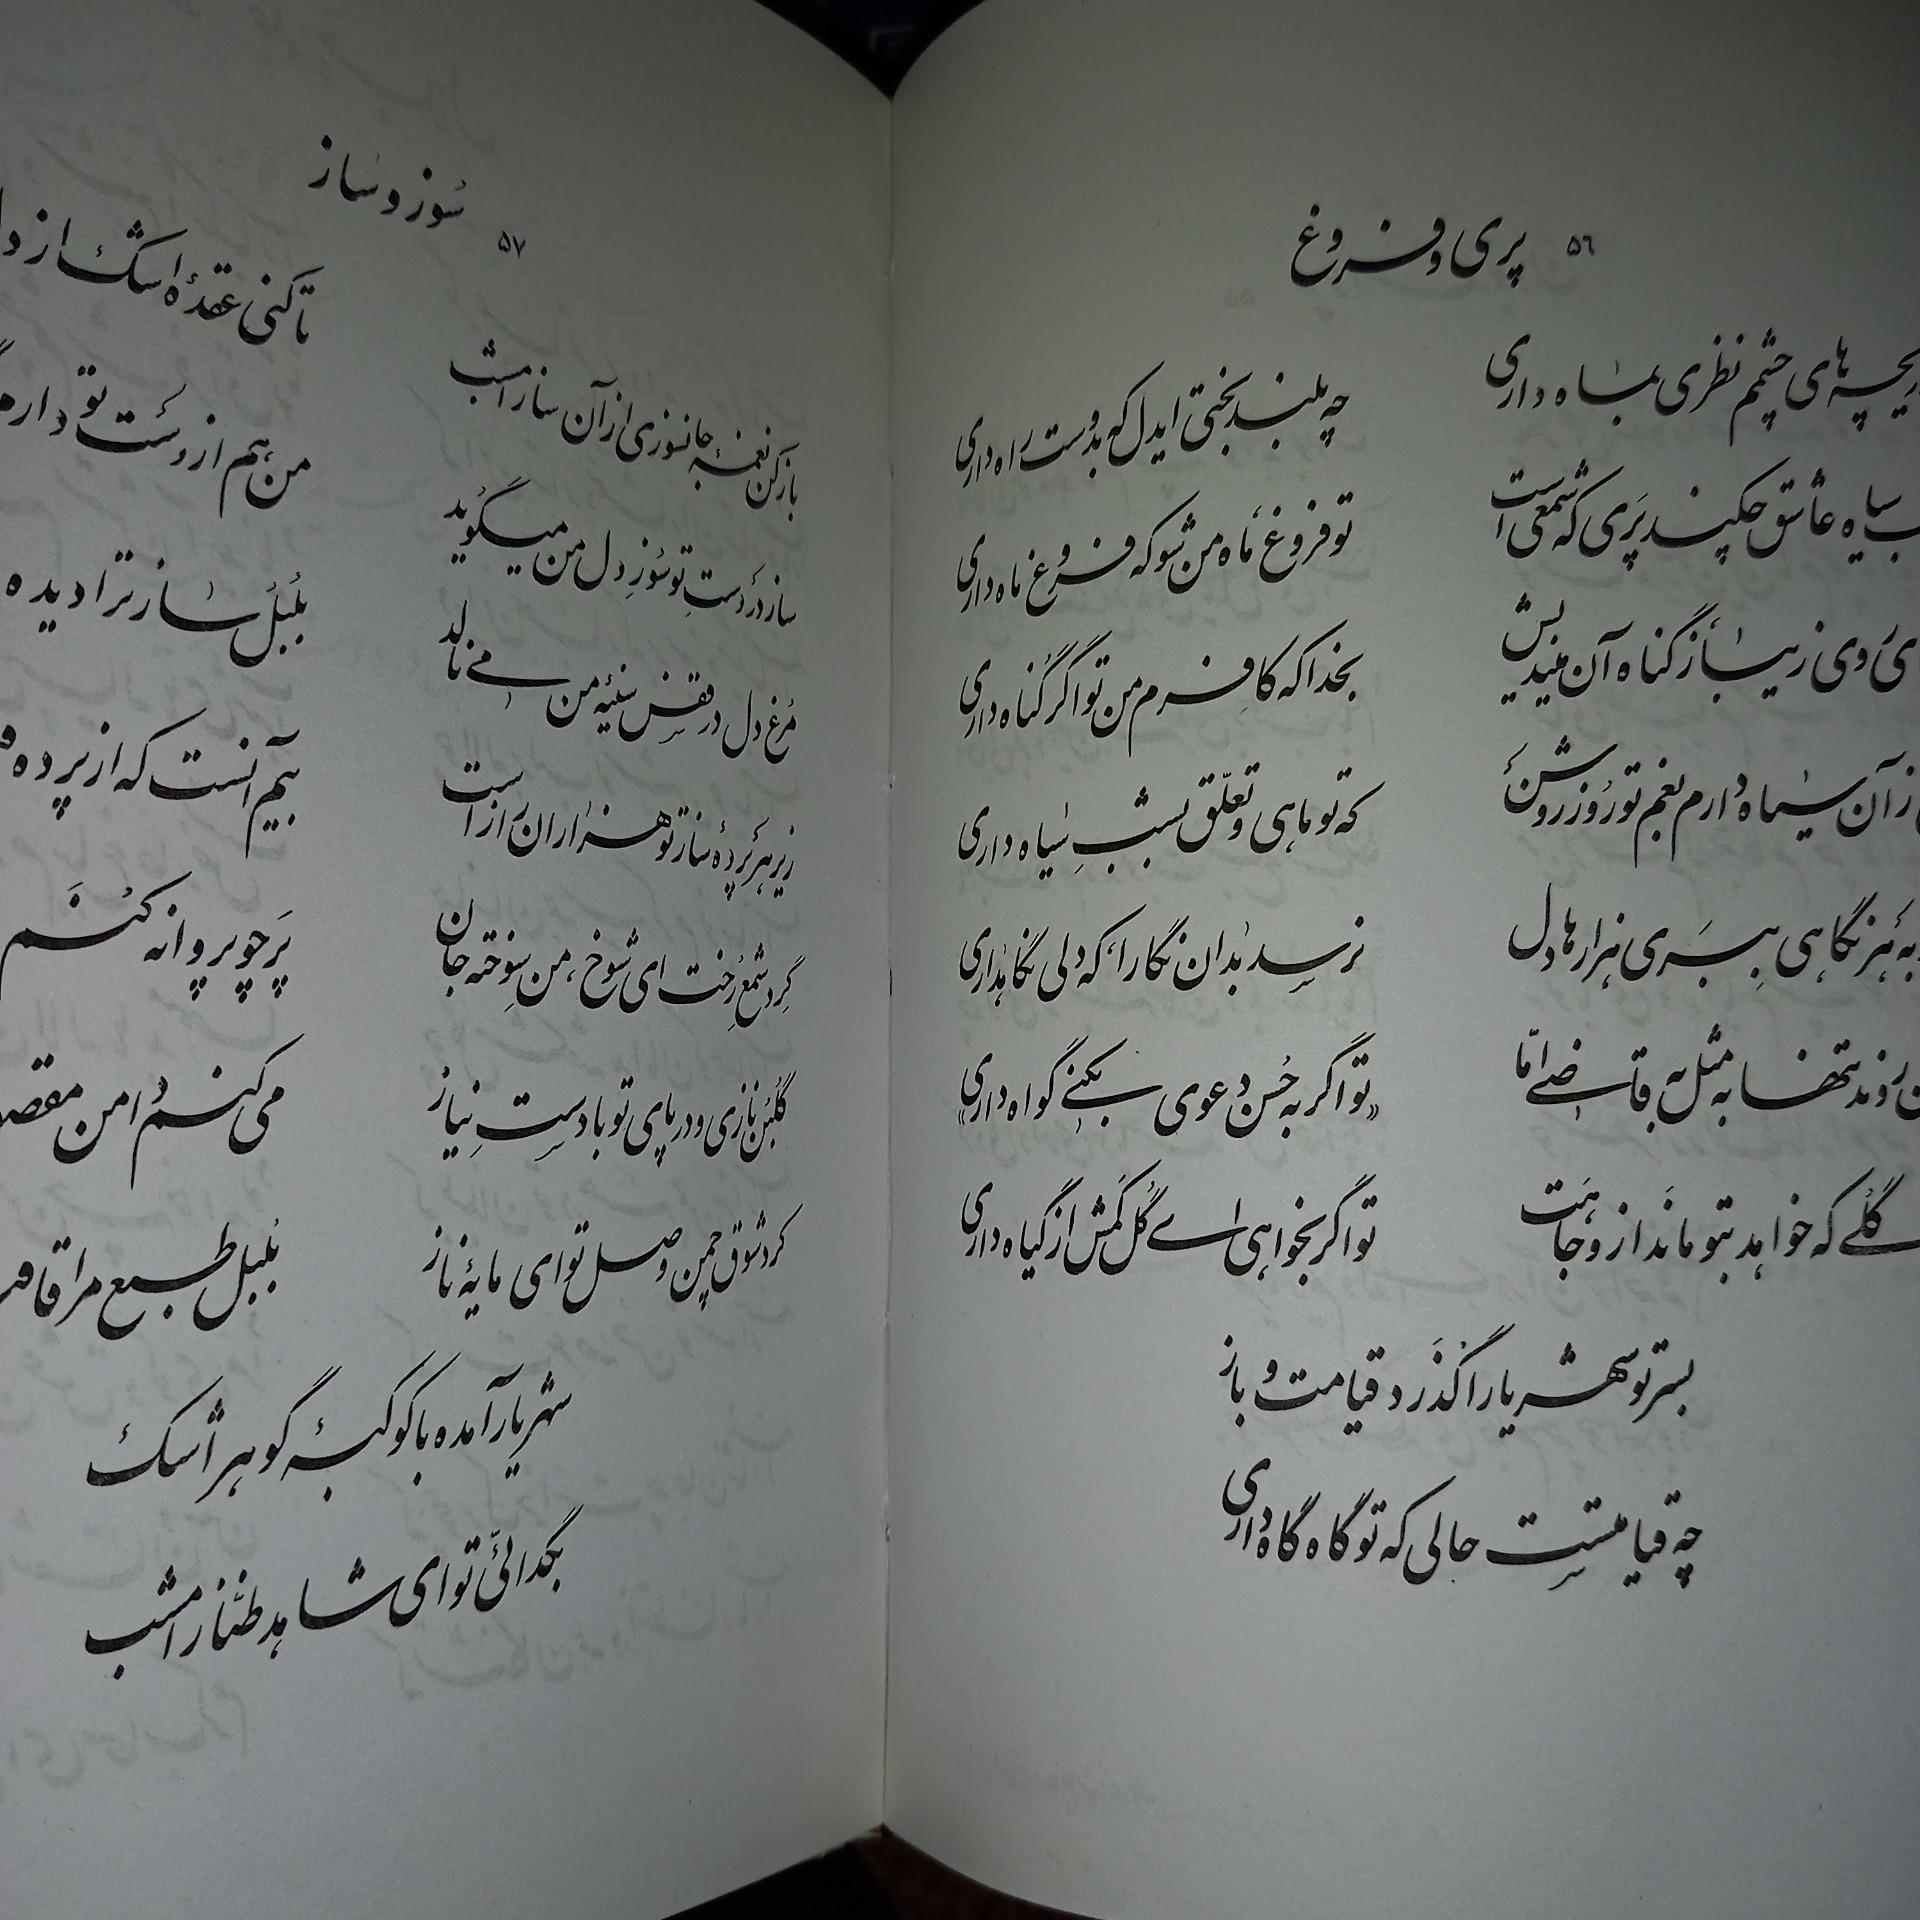 ۵۶ پری و فروغ
ریچه‌های چشم نظری بماه داری
چه بلند بختی ایدل که بدوست راه داری
سیاه عاشق چکند پری که شمعی است
تو فروغ ماه من شو که فروغ ماه داری
روی زیبا ز گناه آن میندیش
بخدا که کافرم من تو اگر گناه داری
از آن سیاه دارم بغم تو روز روشن
که تو ماهی و تعلّق بشبِ سیاه داری
به هر نگاهی بِبَری هزارها دل
نرسد بدان نگارا که دلی نگاهداری
روند تنها به مثل به قاضی امّا
«تو اگر به حُسن دعوی بکنی گواه داری»
گلی که خواهد بتو ماند از وجاهت
تو اگر بخواهی ای گل کمش از گیاه داری
بسر تو شهریارا گذرد قیامت و باز
چه قیامتست حالی که تو گاه گاه داری
۵۷ سوز و ساز
باز کن نغمهٔ جانسوزی از آن ساز امشب
تا کنی عقدهٔ اشک از
ساز در دستِ تو سوزِ دل من میگوید
من هم از دست تو دارم
مرغ دل در قفسِ سینهٔ من می‌نالد
بلبل ساز ترا دیده
زیر هر پردهٔ ساز تو هزاران راز است
بیم آنست که از پرده
گِرد شمعِ رخت ای شوخ، من سوخته جان
پر چو پروانه کنم
گلبن نازی و در پای تو با دستِ نیاز
می کنم دامن مقصو
کرد شوق چمن وصل تو ای مایهٔ ناز
بلبل طبع مرا قافیه
شهریار آمده با کوکبهٔ گوهر اشک
بگدائیِّ تو ای شاهد طنّاز امشب